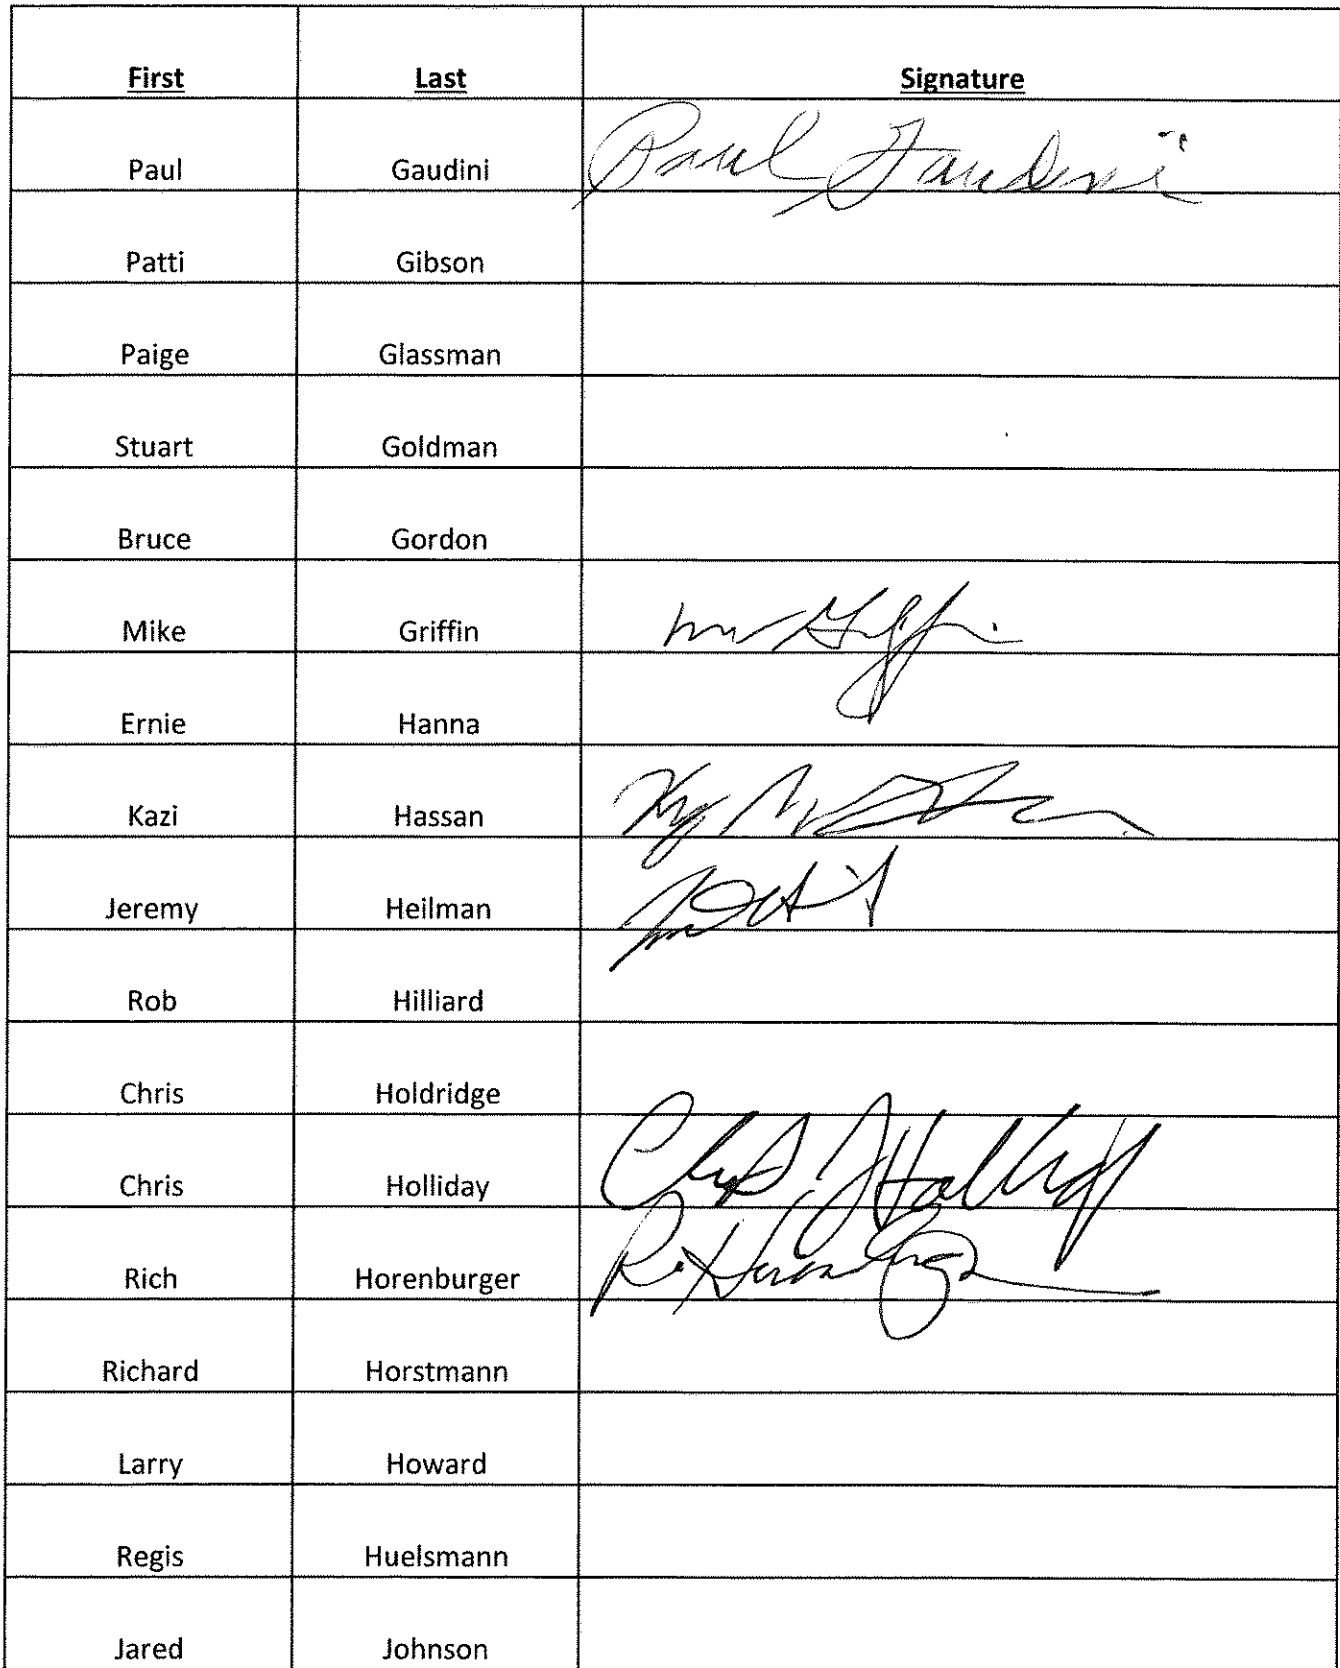 First Last Signature
Paul Gaudini Paul Gaudini
Patti Gibson
Paige Glassman
Stuart Goldman
Bruce Gordon
Mike Griffin Griffin
Ernie Hanna
Kazi Hassan
Jeremy Heilman
Rob Hilliard
Chris Holdridge
Chris Holliday Chris J Holliday
Rich Horenburger R. Horenburger
Richard Horstmann
Larry Howard
Regis Huelsmann
Jared Johnson